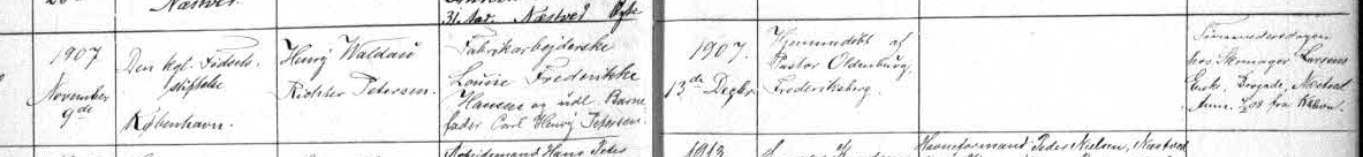 Næstved
31 Aar. Næstved
1907
November
9de
Den kgl. Fødsels-
stiftelse
København.
Henry Waldau
Richter Petersen.
Fabrikarbejderske
Louise Frederikke
Hansen og udl. Barne-
fader Carl Henry Petersen.
1907.
13de Decbr.
Hjemmedøbt af
Pastor Oldenburg,
Frederiksberg.
hos Skomager Larsens
Enke, Brogade, Næstved
Anm. fra Kbhvn.
Arbeidsmand Hans Peter
1913
Havneformand Peder Nielsen, Næstved